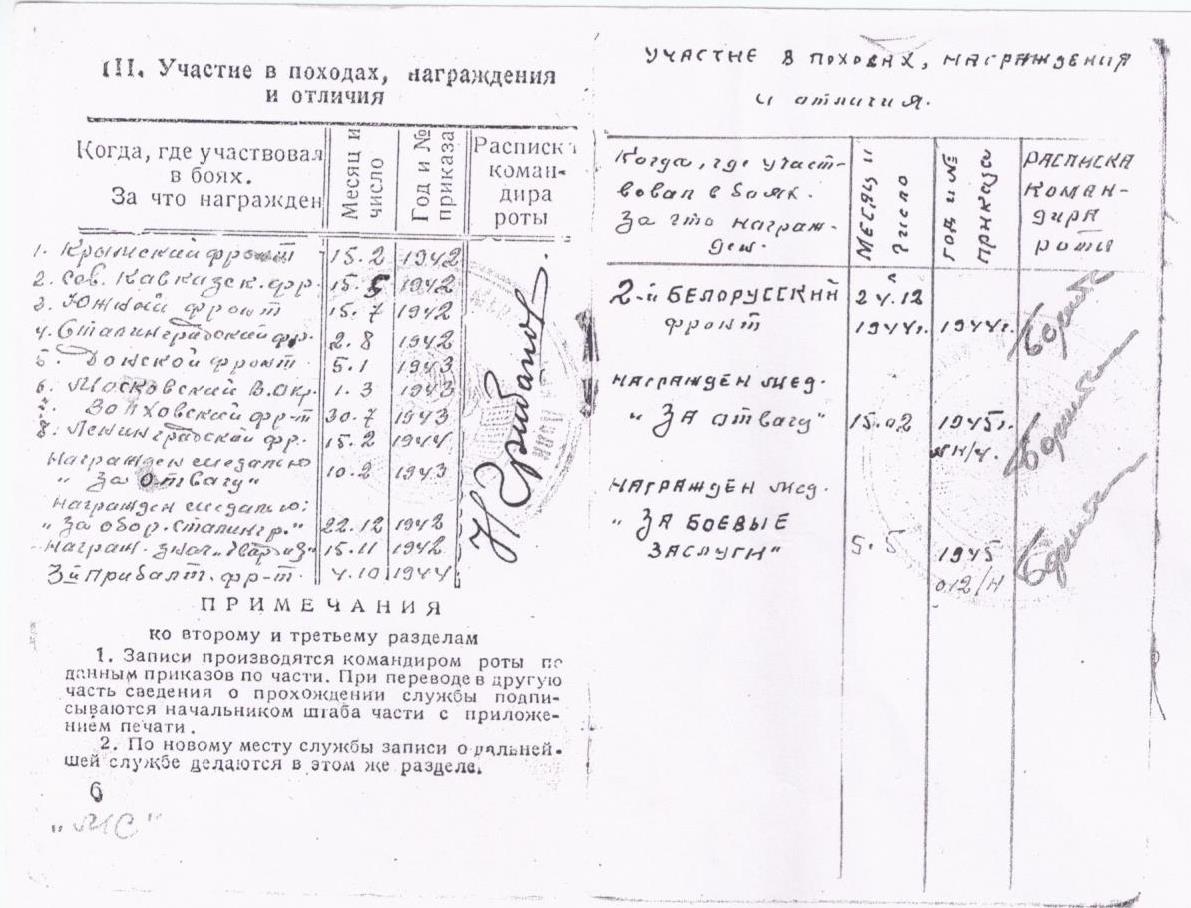 III. Участие в походах, награждения
и отличия
Когда, где участвовал
в боях.
За что награжден
Месяц и
число
Год и №
приказа
Расписка
коман-
дира
роты
1. Крымский фронт 15.2 1942
2. Сев. Кавказск. фр. 15.5 1942
3. Южный фронт 15.7 1942
4. Сталинградский фр. 2.8 1942
5. Донской фронт 5.1 1943
6. Московский В.Окр. 1.3 1943
7. Волховский фр-т 30.7 1943
8. Ленинградский фр. 15.2 1944
Награжден медалью
"За отвагу" 10.2 1943
Награжден медалью:
"За обор. Сталингр." 22.12 1942
Награж. знач. 15.11 1942
3й Прибалт. фр-т. 4.10 1944
Н Грибанов
ПРИМЕЧАНИЯ
ко второму и третьему разделам
1. Записи производятся командиром роты по
данным приказов по части. При переводе в другую
часть сведения о прохождении службы подпи-
сываются начальником штаба части с приложе-
нием печати.
2. По новому месту службы записи о дальней-
шей службе делаются в этом же разделе.
6
"МС"
УЧАСТИЕ В ПОХОДАХ, НАГРАЖДЕНИЯ
и отличия.
Когда, где участ-
вовал в боях.
За что награж-
ден.
МЕСЯЦ и
число
год и №
приказа
РАСПИСКА
КОМАН-
ДИРА
роты
2-й БЕЛОРУССКИЙ 24.12
фронт 1944г. 1944г.
НАГРАЖДЕН мед.
"ЗА отвагу" 15.02 1945г.
НАГРАЖДЕН мед.
"ЗА БОЕВЫЕ
ЗАСЛУГИ" 5.5 1945
012/Н